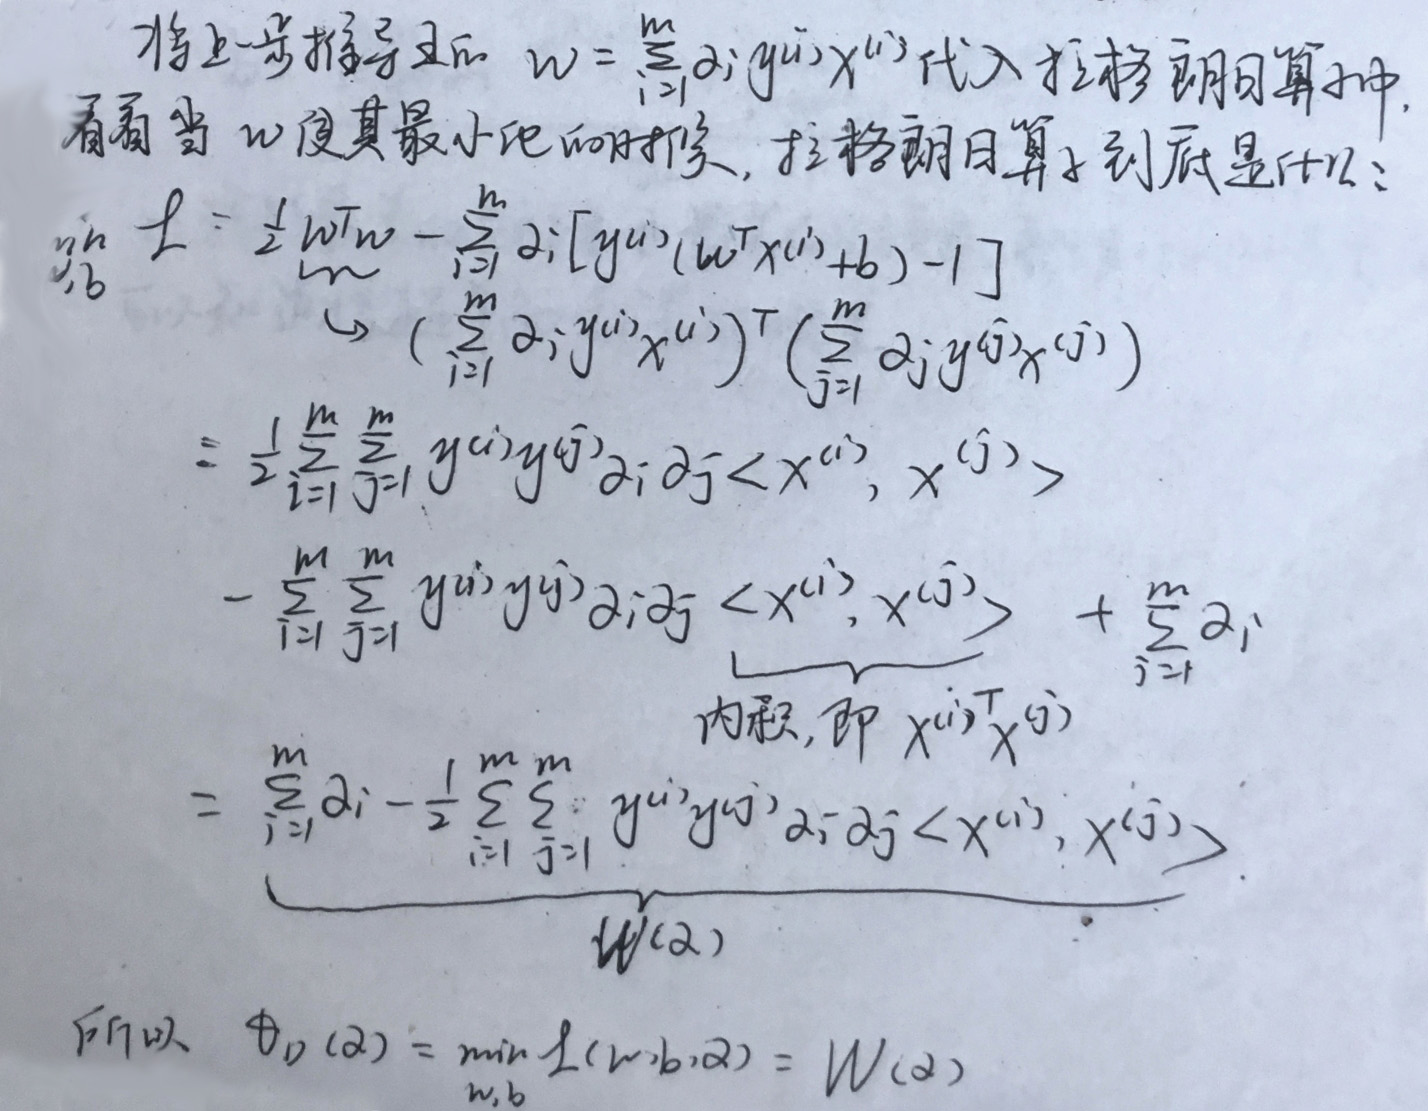 将上一步推导出的 w = ∑_{i=1}^{m} α_i y^{(i)} x^{(i)} 代入拉格朗日算子中,
看看当 w 使其最小化的时候, 拉格朗日算子到底是什么:
min_{w,b} L = 1/2 w^T w - ∑_{i=1}^{m} α_i [y^{(i)} (w^T x^{(i)} + b) - 1]
↳ (∑_{i=1}^{m} α_i y^{(i)} x^{(i)})^T (∑_{j=1}^{m} α_j y^{(j)} x^{(j)})
= 1/2 ∑_{i=1}^{m} ∑_{j=1}^{m} y^{(i)} y^{(j)} α_i α_j <x^{(i)}, x^{(j)}>
- ∑_{i=1}^{m} ∑_{j=1}^{m} y^{(i)} y^{(j)} α_i α_j <x^{(i)}, x^{(j)}> + ∑_{i=1}^{m} α_i
内积, 即 x^{(i)T} x^{(j)}
= ∑_{i=1}^{m} α_i - 1/2 ∑_{i=1}^{m} ∑_{j=1}^{m} y^{(i)} y^{(j)} α_i α_j <x^{(i)}, x^{(j)}>
W(α)
所以 θ_D(α) = min_{w,b} L(w,b,α) = W(α)